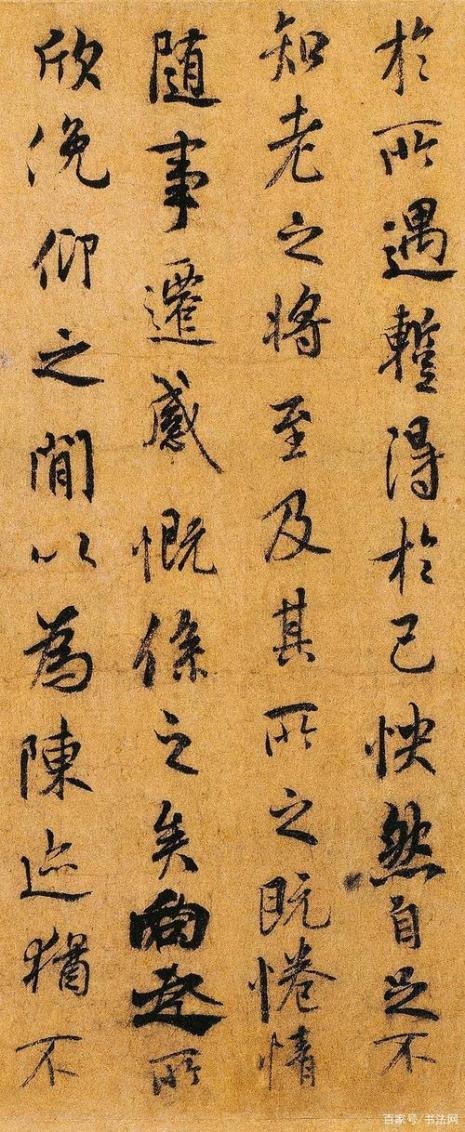 於所遇蹔得於己怏然自足不
知老之將至及其所之既惓情
随事遷感慨係之矣向之所
欣俛仰之閒以為陳迹猶不
百家号/书法网